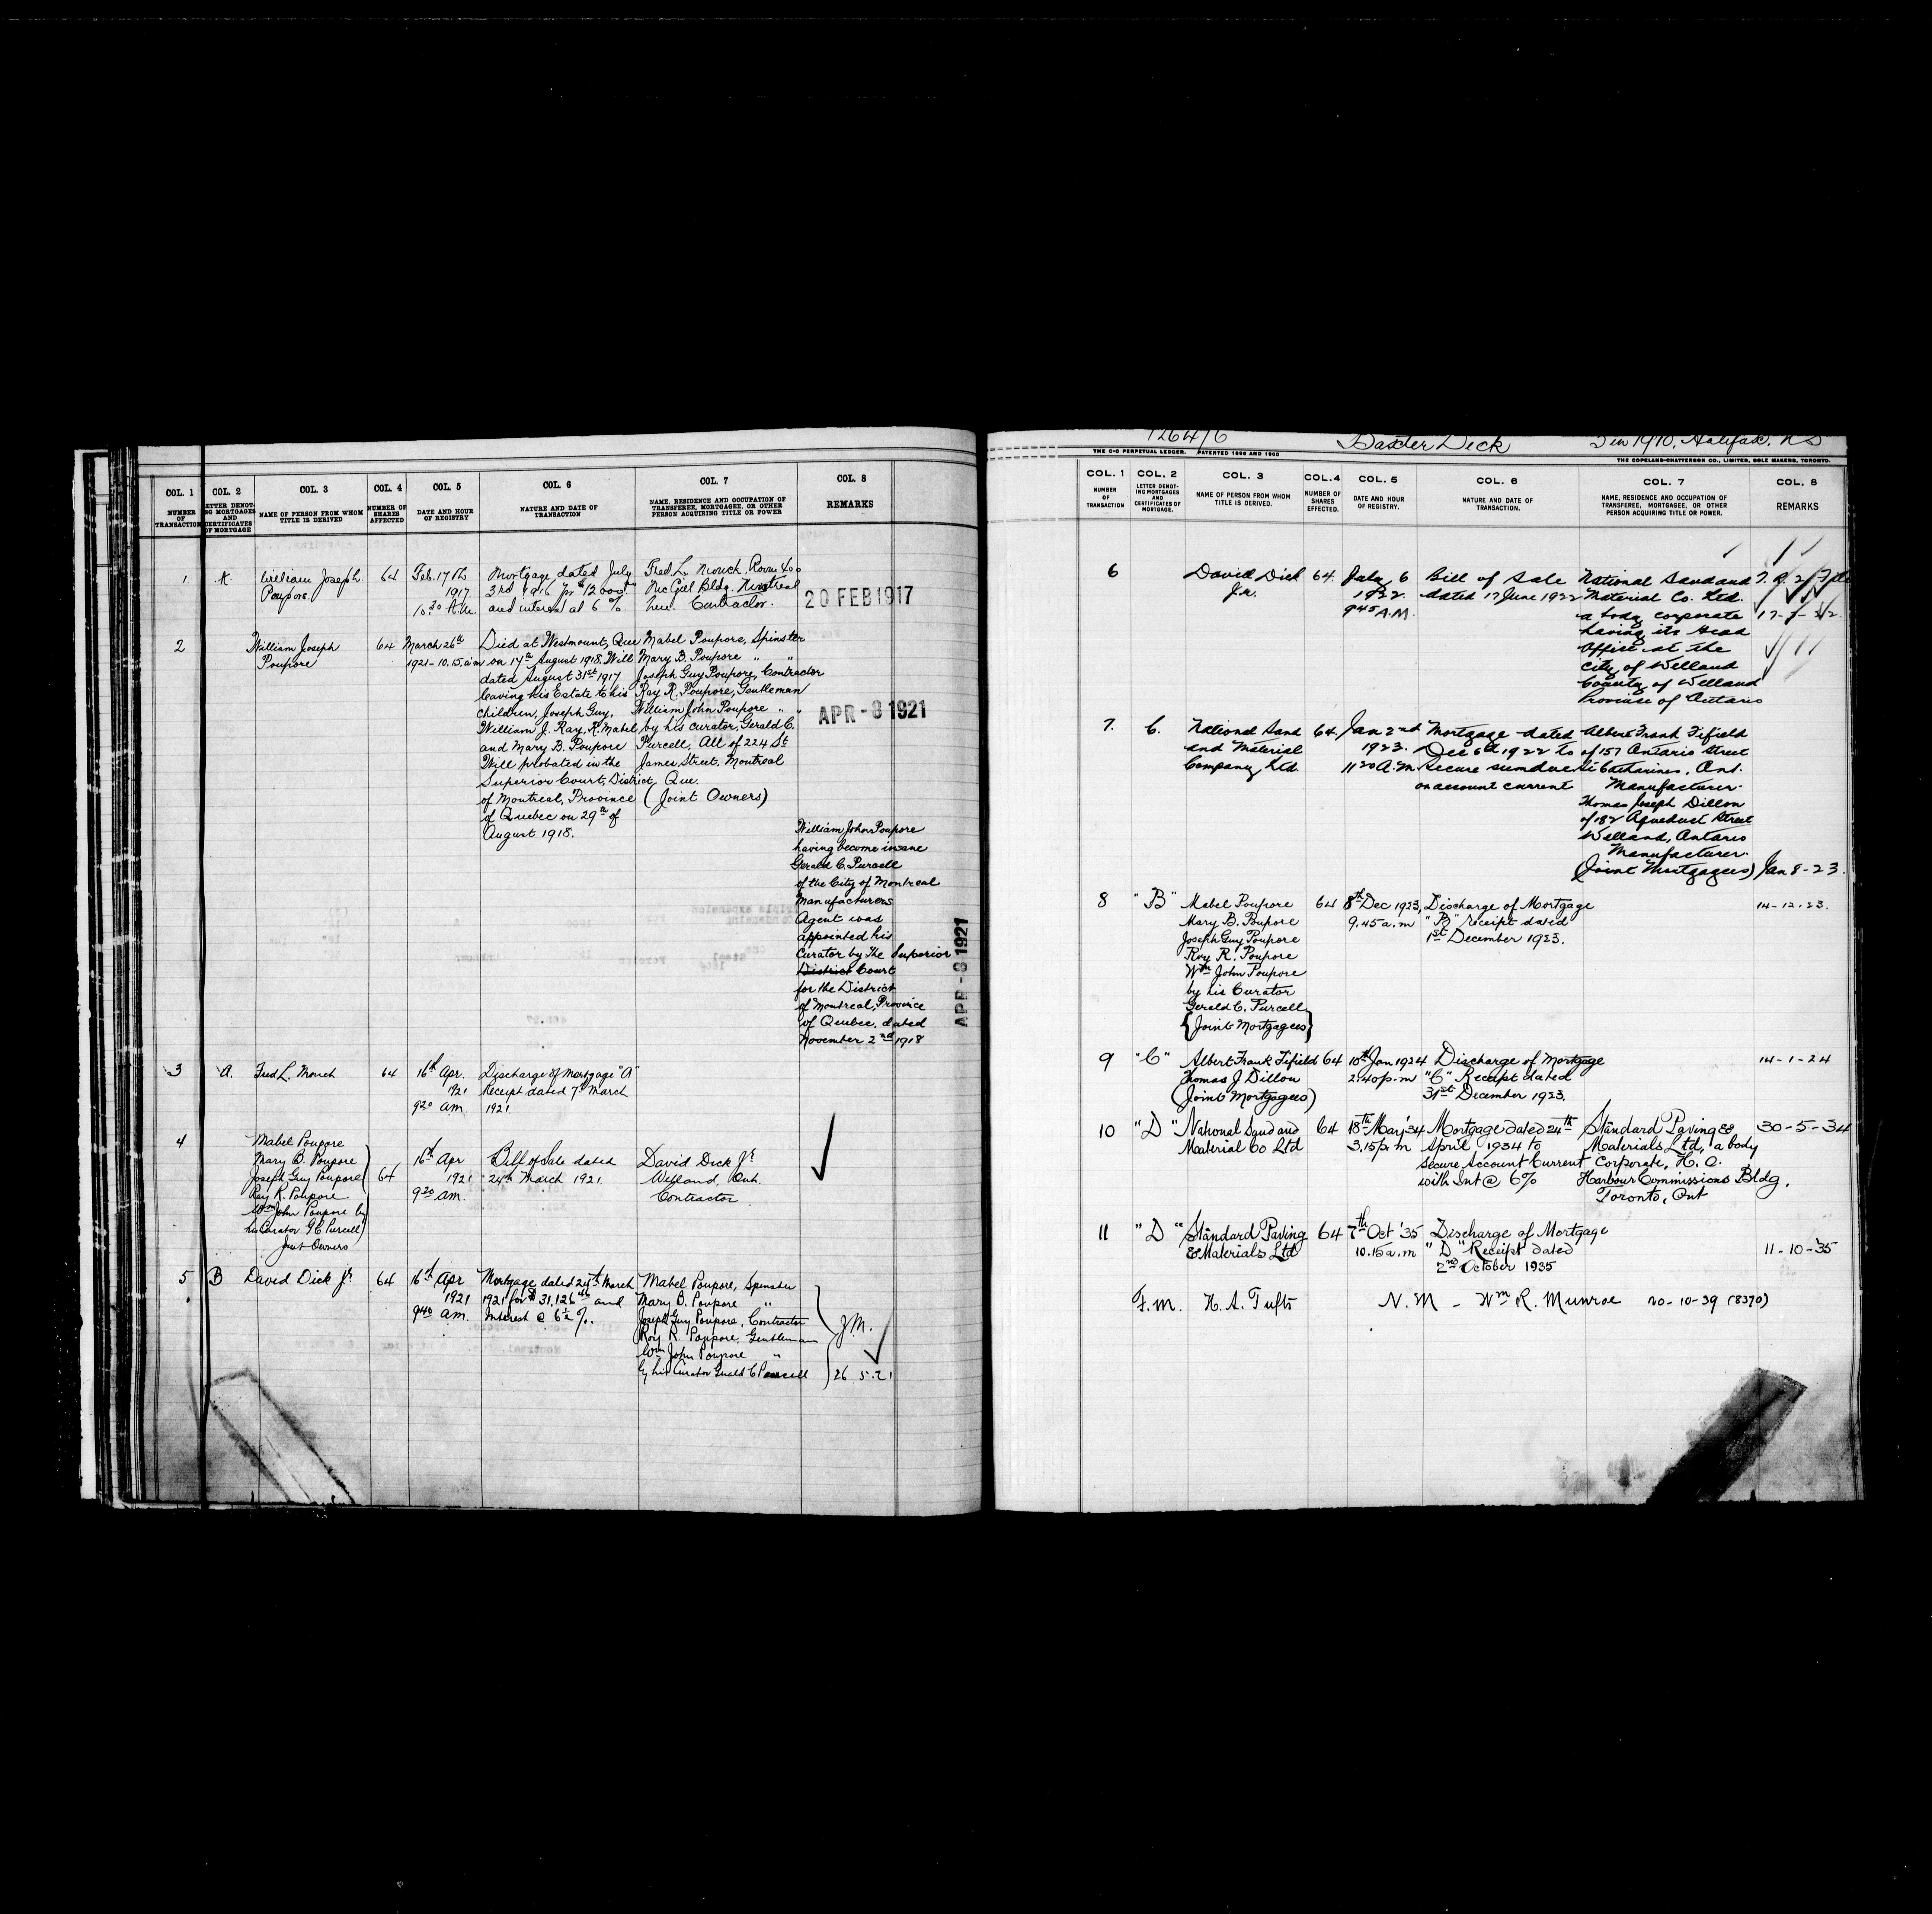 COL. 1
NUMBER OF TRANSACTION
COL. 2
LETTER DENOTING MORTGAGES AND CERTIFICATES OF MORTGAGE
COL. 3
NAME OF PERSON FROM WHOM TITLE IS DERIVED
COL. 4
NUMBER OF SHARES AFFECTED
COL. 5
DATE AND HOUR OF REGISTRY
COL. 6
NATURE AND DATE OF TRANSACTION
COL. 7
NAME, RESIDENCE AND OCCUPATION OF TRANSFEREE, MORTGAGEE, OR OTHER PERSON ACQUIRING TITLE OR POWER
COL. 8
REMARKS
1
A.
William Joseph
Poupore
64
Feb. 17th
1917
10.30 A.M.
Mortgage dated July
3rd 1916 for $12000.00
and interest at 6%.
Fred L.
McGill Bldg. Montreal
Contractor.
20 FEB 1917
2
William Joseph
Poupore
64
March 26th
1921 - 10.15 a.m
Died at Westmount, Que
on 17th August 1918. Will
dated August 31st 1917
leaving his Estate to his
children, Joseph Guy,
William J. Ray, R. Mabel
and Mary B. Poupore
Will probated in the
Superior Court, District
of Montreal, Province
of Quebec on 29th of
August 1918.
Mabel Poupore, Spinster
Mary B. Poupore " "
Joseph Guy Poupore, Contractor
Ray R. Poupore, Gentleman
William John Poupore " "
by his curator, Gerald C.
Purcell, All of 224 St
James Street, Montreal
Que.
(Joint Owners)
APR - 8 1921
William John Poupore
having become insane
Gerald C. Purcell
of the City of Montreal
Manufacturers
Agent was
appointed his
Curator by the Superior
District Court
for the District
of Montreal, Province
of Quebec, dated
November 2nd 1918
APR - 8 1921
3
A.
Fred L.
64
16th Apr.
1921
9.20 am
Discharge of Mortgage "A"
Receipt dated 7th March
1921.
4
Mabel Poupore
Mary B. Poupore
Joseph Guy Poupore
Ray R. Poupore
Wm John Poupore by
his Curator G C Purcell
Joint Owners
64
16th Apr
1921
9.30 am.
Bill of Sale dated
24th March 1921.
David Dick Jr.
Welland, Ont.
Contractor
5
B
David Dick Jr.
64
16th Apr
1921
9.40 am.
Mortgage dated 24th March
1921 for $31,126 and
Interest @ 6½ %.
Mabel Poupore, Spinster
Mary B. Poupore "
Joseph Guy Poupore, Contractor
Roy R. Poupore, Gentleman
Wm John Poupore "
by his Curator Gerald C Purcell
J.M.
26 5.21
126476
Baxter Dick
1910, Halifax, NS
THE C-C PERPETUAL LEDGER. PATENTED 1898 AND 1900
THE COPELAND-CHATTERSON CO., LIMITED, SOLE MAKERS, TORONTO.
COL. 1
NUMBER OF TRANSACTION
COL. 2
LETTER DENOTING MORTGAGES AND CERTIFICATES OF MORTGAGE.
COL. 3
NAME OF PERSON FROM WHOM TITLE IS DERIVED.
COL. 4
NUMBER OF SHARES EFFECTED.
COL. 5
DATE AND HOUR OF REGISTRY.
COL. 6
NATURE AND DATE OF TRANSACTION.
COL. 7
NAME, RESIDENCE AND OCCUPATION OF TRANSFEREE, MORTGAGEE, OR OTHER PERSON ACQUIRING TITLE OR POWER.
COL. 8
REMARKS
6
David Dick
Jr.
64.
July 6
1922.
9.45 A.M.
Bill of Sale
dated 17 June 1922
National Sand and
Material Co. Ltd.
a body corporate
having its Head
Office at the
City of Welland
County of Welland
Province of Ontario
7.
C.
National Sand
and Material
Company Ltd.
64.
Jan 2nd
1923.
11.20 A.M.
Mortgage dated
Dec 6th 1922 to
secure sum due
on account current
Albert Frank Fifield
of 157 Ontario Street
St Catharines, Ont.
Manufacturer.
Thomas Joseph Dillon
of 182 Aqueduct Street
Welland, Ontario
Manufacturer.
(Joint Mortgagees)
Jan 8-23.
8
"B"
Mabel Poupore
Mary B. Poupore
Joseph Guy Poupore
Roy R. Poupore
Wm John Poupore
by his Curator
Gerald C. Purcell
{Joint Mortgagees}
64
8th Dec 1923,
9.45 a.m
Discharge of Mortgage
"B" receipt dated
1st December 1923.
14-12-23.
9
"C"
Albert Frank Fifield
Thomas J Dillon
(Joint Mortgagees)
64
10th Jan 1924
2.40 p.m
Discharge of Mortgage
"C" Receipt dated
31st December 1923.
14-1-24
10
"D"
National Sand and
Material Co Ltd
64
18th May '34
3.15 p.m
Mortgage dated 24th
April, 1934 to
secure Account Current
with Int @ 6%
Standard Paving &
Materials Ltd, a body
Corporate, H. O.
Harbour Commissions Bldg,
Toronto, Ont
30-5-34
11
"D"
Standard Paving
& Materials Ltd
64
7th Oct '35
10.15 a.m
Discharge of Mortgage
"D" Receipt dated
2nd October 1935
11-10-35
F.M. H. A. Tufts N.M - Wm R. Munroe 20-10-39 (8370)